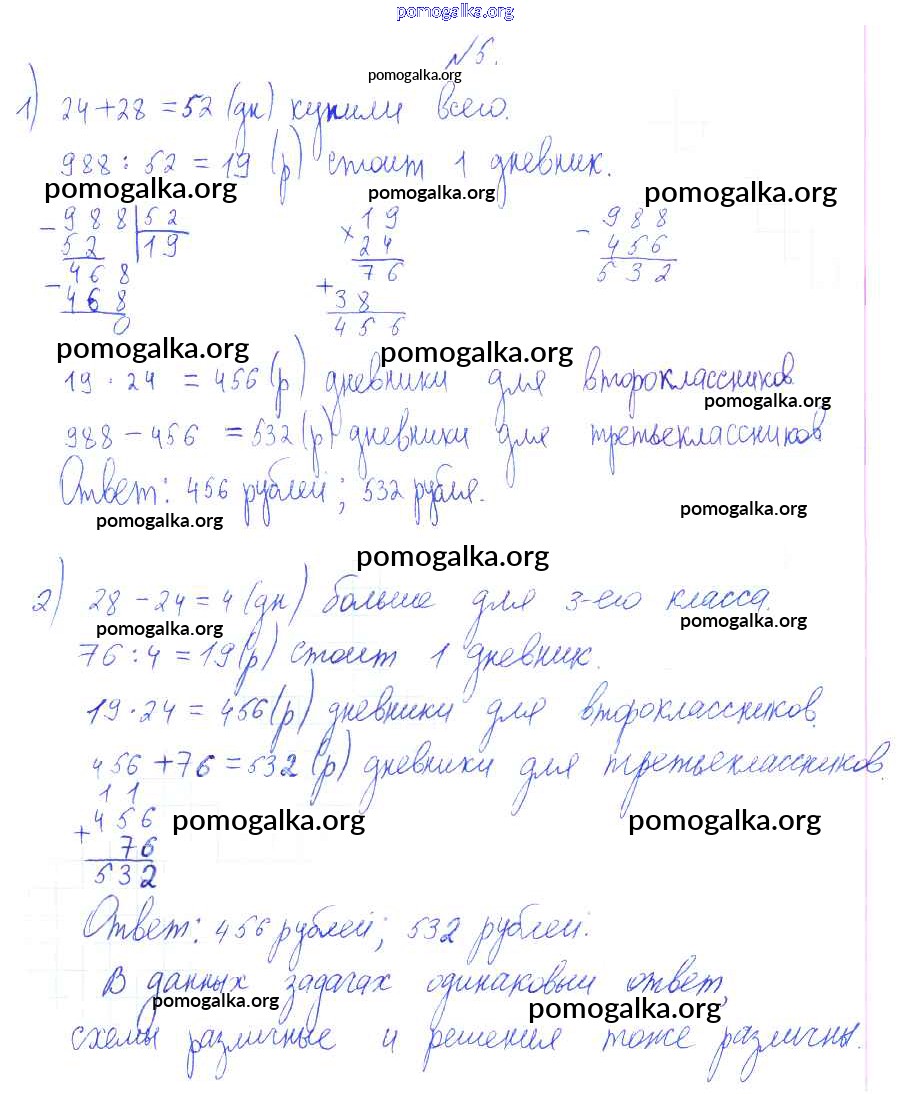 pomogalka.org
№5.
pomogalka.org
1) 24+28=52 (дн) купили всего.
988:52=19 (р) стоит 1 дневник.
pomogalka.org pomogalka.org pomogalka.org
- 988 | 52
52 | 19
- 468
468
0
× 19
24
76
+ 38
456
- 988
456
532
pomogalka.org pomogalka.org
19·24=456(р) дневники для второклассников
pomogalka.org
988-456=532(р) дневники для третьеклассников
Ответ: 456 рублей; 532 рубля.
pomogalka.org pomogalka.org
pomogalka.org
2) 28-24=4(дн) больше для 3-его класса.
pomogalka.org pomogalka.org
76:4=19(р) стоит 1 дневник.
19·24=456(р) дневники для второклассников.
456+76=532(р) дневники для третьеклассников.
11
+ 456
76
532
pomogalka.org pomogalka.org
Ответ: 456 рублей; 532 рублей.
В данных задачах одинаковый ответ,
pomogalka.org pomogalka.org
схемы различные и решения тоже различны.